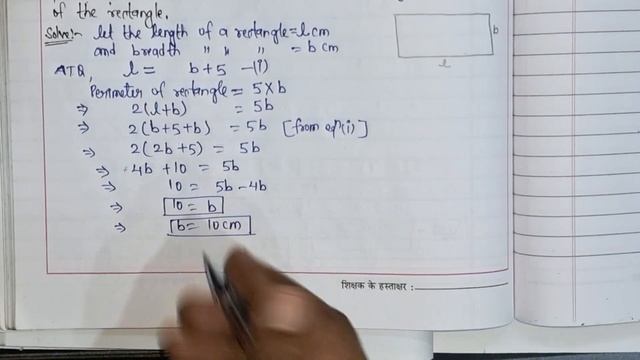 of the rectangle.
Solve:- let the length of a rectangle = l cm
and breadth " " " = b cm
ATQ, l = b+5 -(i)
Perimeter of rectangle = 5×b
⇒ 2(l+b) = 5b
⇒ 2(b+5+b) = 5b [from eqⁿ(i)]
⇒ 2(2b+5) = 5b
⇒ 4b+10 = 5b
⇒ 10 = 5b-4b
⇒ 10 = b
⇒ b = 10cm
b
l
शिक्षक के हस्ताक्षर :